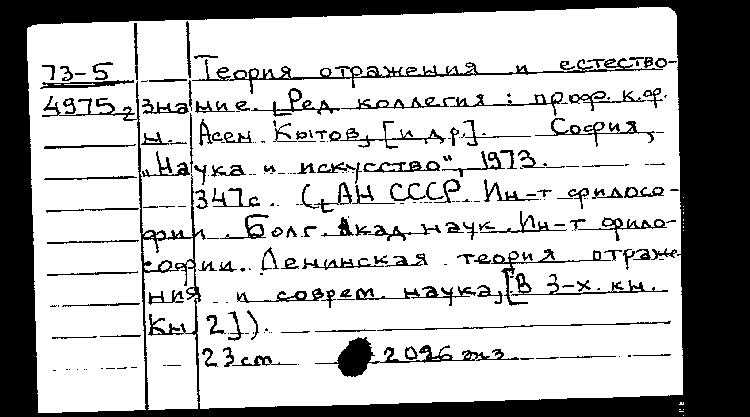 73-5 Теория отражения и естество-
4975₂ знание. [Ред. коллегия: проф. к.ф.
н. Асен Кытов, [и др.]. София,
„Наука и искусство", 1973.
347с. (АН СССР. Ин-т филосо-
фии. Болг. Акад. наук. Ин-т фило-
софии. Ленинская теория отраже
ния и соврем. наука, [В 3-х. кн.
Кн. 2]).
23 см 2096 экз